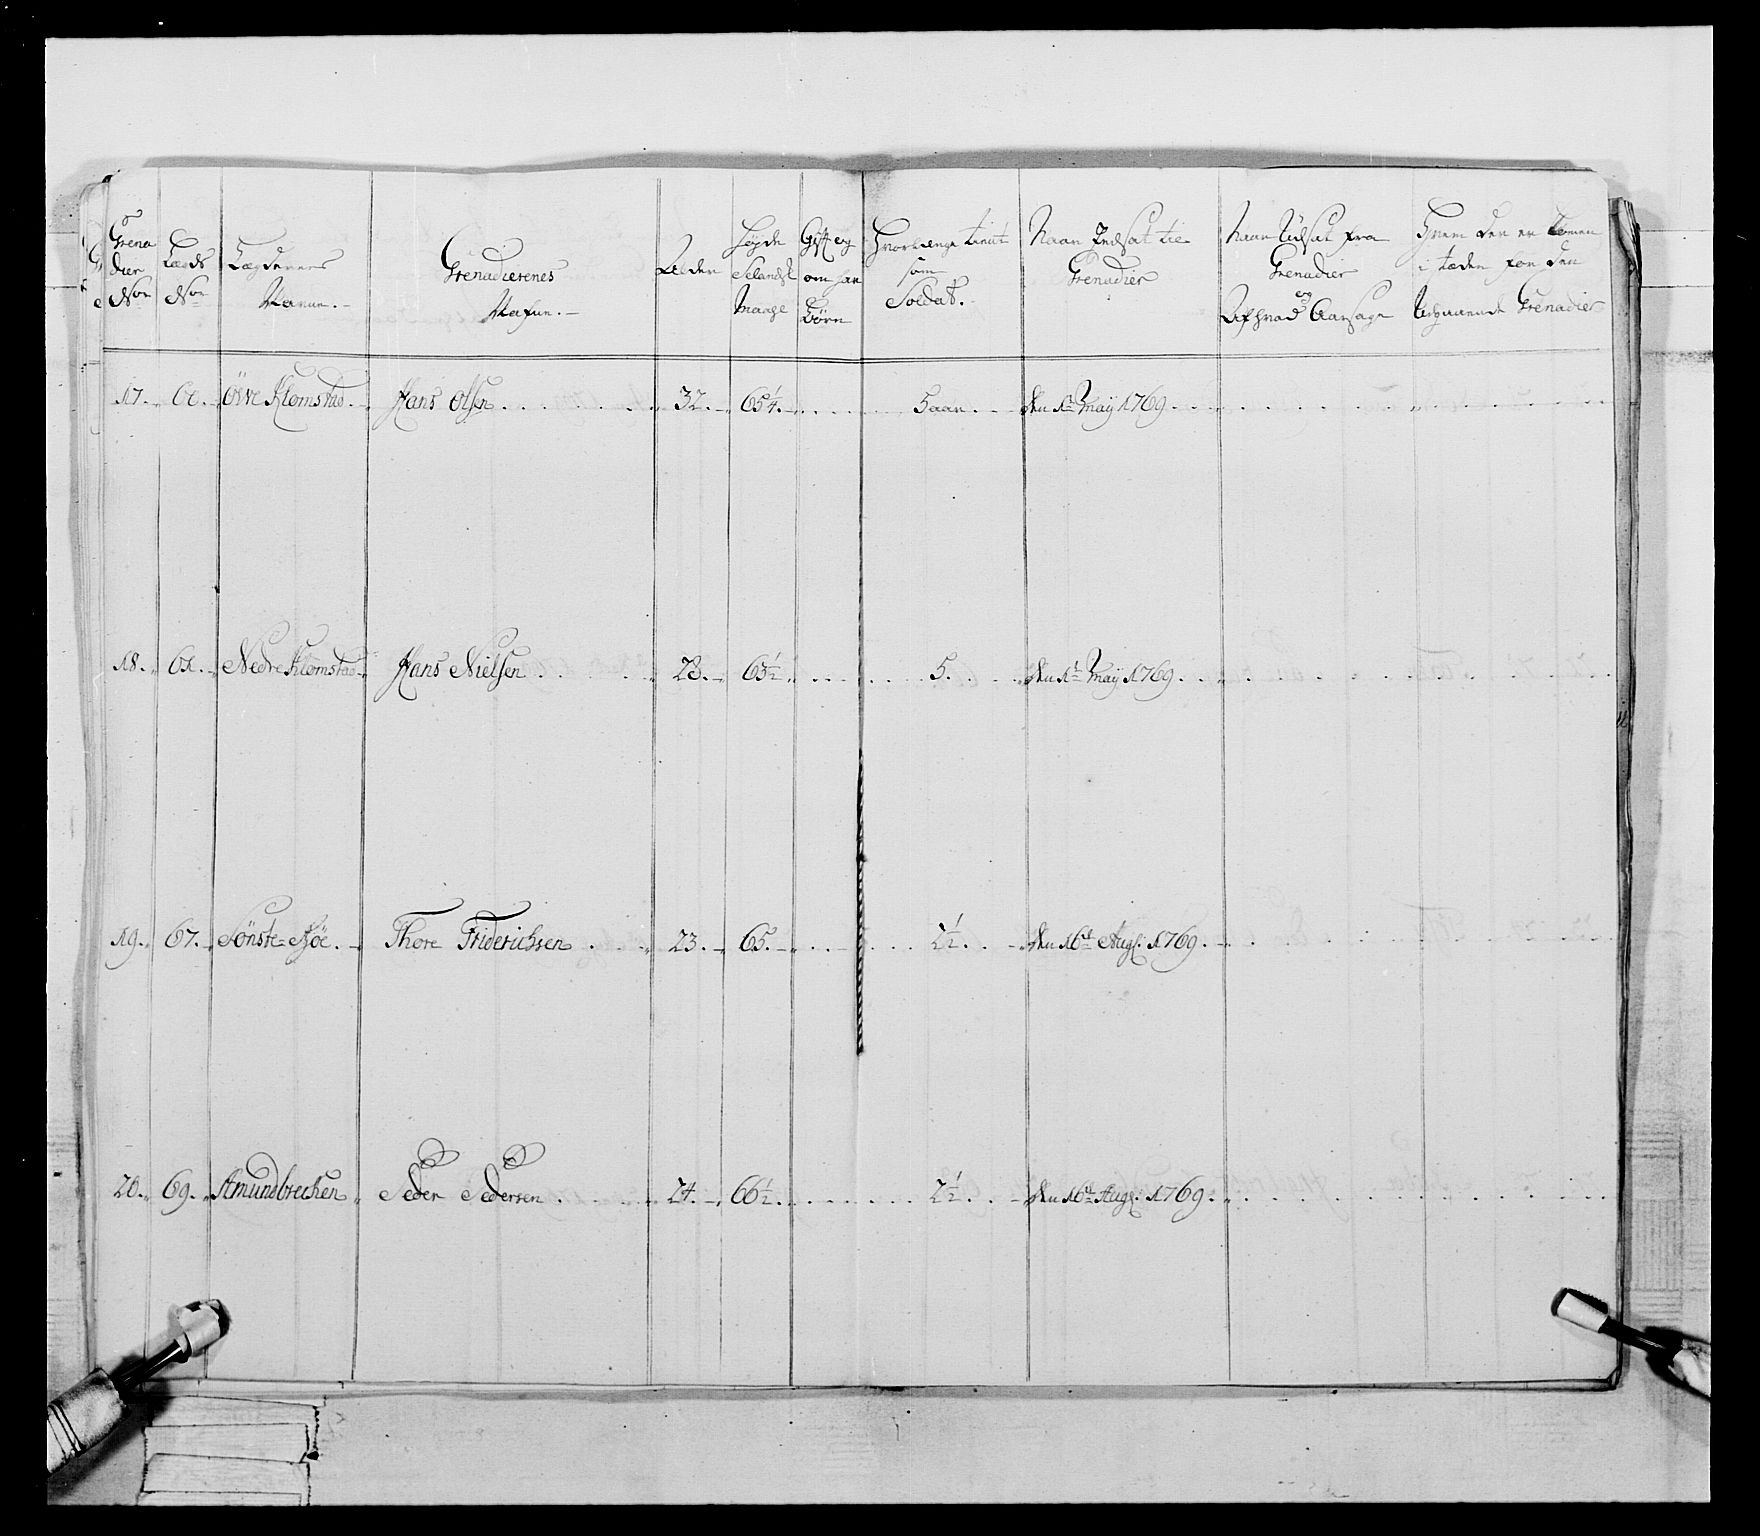 Grena dier No | Lægds No | Lægdernes Nafne. | Grenadierenes Nafne. | Alder | Høyde Selandsk Maael | Gift og om har Børn | Hvor længe tient som Soldat. | Naar Indsat til Grenadier | Naar Udsat fra Grenadier og Af hvad Aarsage | Hvem der er kommen i stæden for den Udgaaende Grenadier
17. | 60. | ÖVre Klomstad. | Hans Olsen | 32. | 65¼. | 5 aar. | den 1te May 1769.
18. | 61. | Nedre Klomstad | Hans Nielsen | 28. | 65½ | 5. | den 1te May 1769.
19. | 67. | Sönste-Böe. | Thore Friderichsen | 23. | 65. | 2½. | den 16de Aug: 1769.
20. | 69. | Amundbrechen | Peder Pedersen | 24. | 66½. | 2½. | den 16de Aug: 1769.